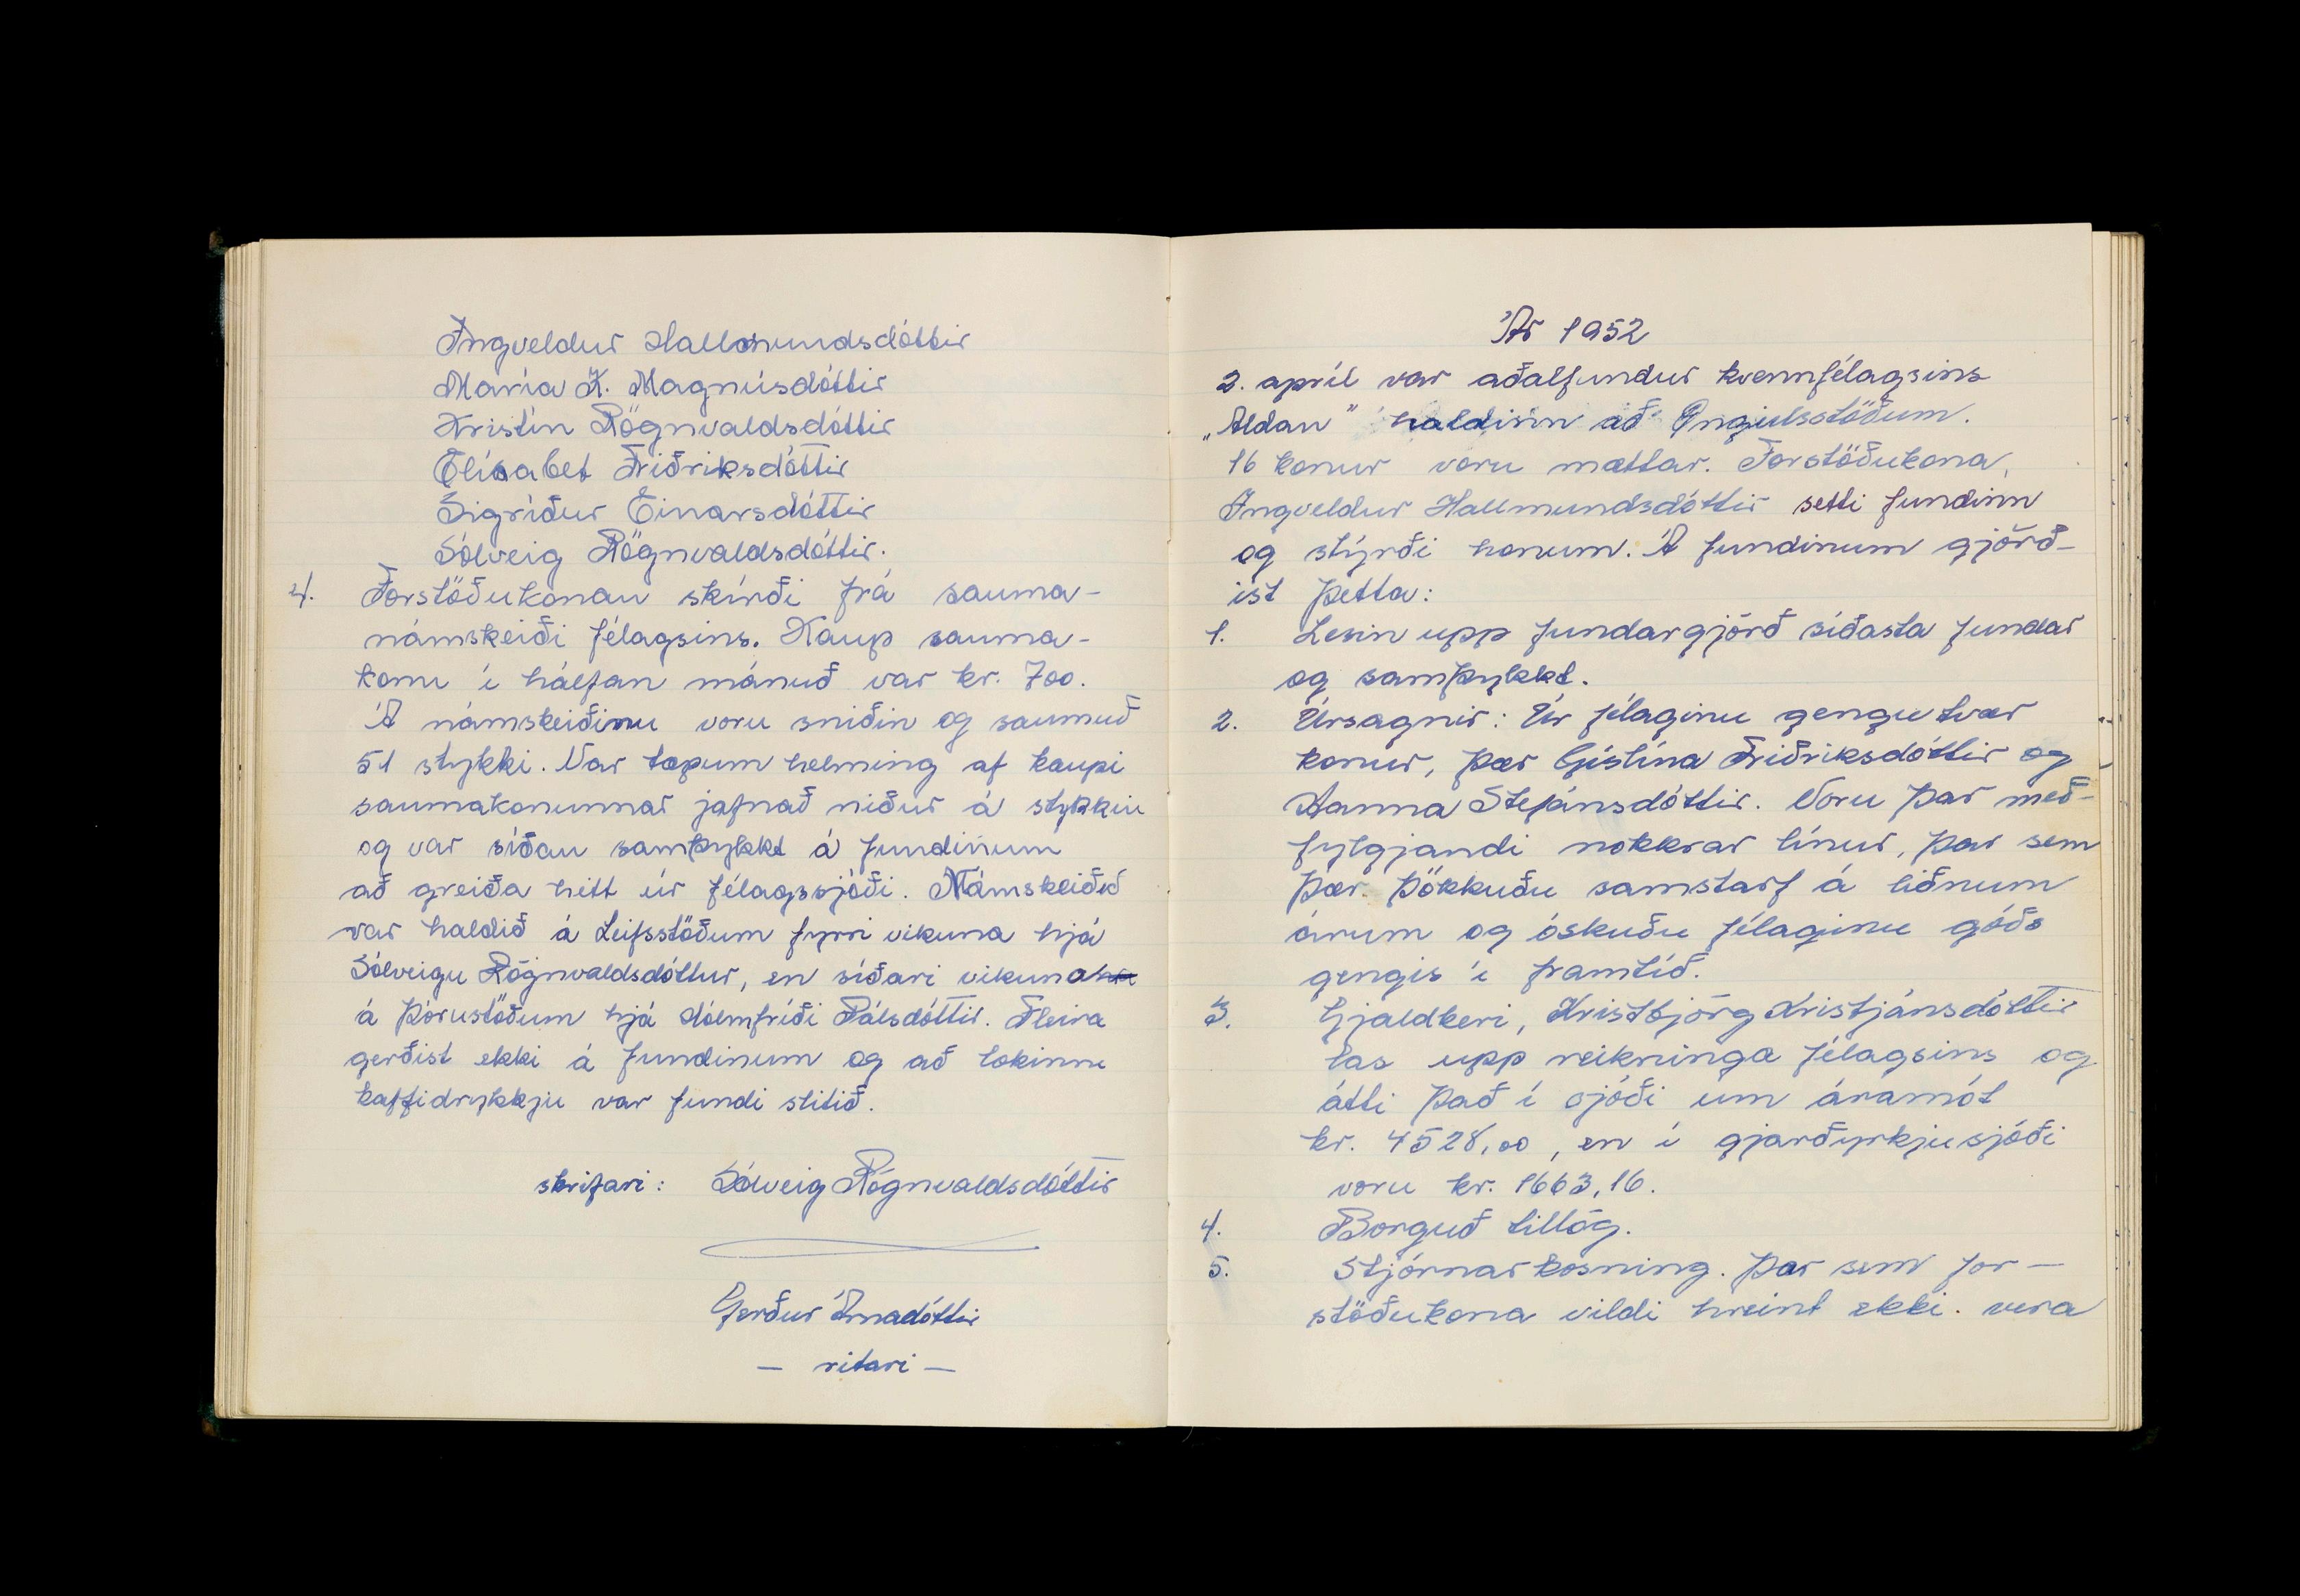 Ingveldur Hallmundsdóttir
María K. Magnúsdóttir
Kristín Rögnvaldsdóttir
Elísabet Friðriksdóttir
Sigríður Einarsdóttir
Sólveig Rögnvaldsdóttir.
4. Forstöðukonan skírði frá sauma-
námskeiði félagsins. Kaup sauma-
konu í hálfan mánuð var kr. 700.
Á námskeiðinu voru sniðin og saumuð
51 stykki. Var tæpum helming af kaupi
saumakonunnar jafnað niður á stykkin
og var síðan samþykkt á fundinum
að greiða hitt úr félagssjóði. Námskeiðið
var haldið á Leifsstöðum fyrri vikuna hjá
Sólveigu Rögnvaldsdóttur, en síðari vikuna
á Þórustöðum hjá Hólmfríði Pálsdóttir. Fleira
gerðist ekki á fundinum og að lokinni
kaffidrykkju var fundi slitið.
skrifari: Sólveig Rögnvaldsdóttir
Gerður Árnadóttir
- ritari -
Ár 1952
2. apríl var aðalfundur kvennfélagsins
„Aldan" haldinn að Öngulsstöðum.
16 konur voru mættar. Forstöðukona,
Ingveldur Hallmundsdóttir setti fundinn
og stýrði honum. Á fundinum gjörð-
ist þetta:
1. Lesin upp fundargjörð síðasta fundar
og samþykkt.
2. Úrsagnir: Úr félaginu gengu tvær
konur, þær Gístína Friðriksdóttir og
Hanna Stefánsdóttir. Voru þar með-
fylgjandi nokkrar línur, þar sem
þær þökkuðu samstarf á liðnum
árum og óskuðu félaginu góðs
gengis í framtíð.
3. Gjaldkeri, Kristbjörg Kristjánsdóttir
las upp reikninga félagsins og
átti það í sjóði um áramót
kr. 4528,00, en í gjarðyrkjusjóði
voru kr. 1663,16.
4. Borguð tillög.
5. Stjórnarkosning. Þar sem for-
stöðukona vildi hreint ekki vera